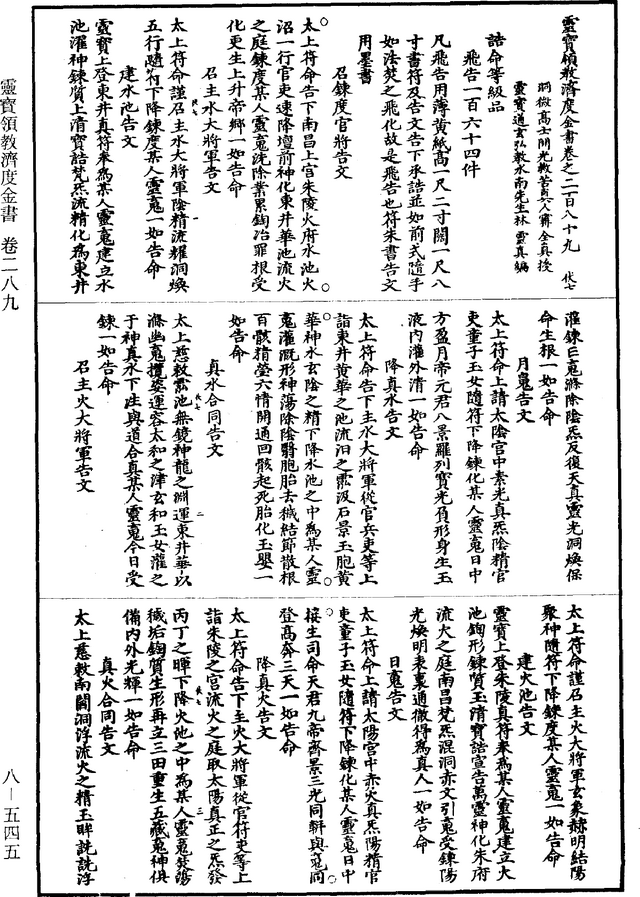 靈寶領教濟度金書卷之二百八十九 伏七
洞微高士開光救苦真人甯全真授
靈寶道玄弘教水南先生林靈真編
誥命等級品
飛告一百六十四件
凡飛告用薄黃紙高一尺二寸闊一尺八
寸書符及告文告下承誥並如前式隨手
如法焚之飛化故是飛告也符朱書告文
用墨書
召鍊度官將告文
太上符命告下南昌上宮朱陵火府水池火
沼一行官吏速降壇前神化東井華池流火
之庭鍊度某人靈䰟洗除業累鉤冶罪根受
化更生上升帝鄉一如告命
召主水大將軍告文
太上符命謹召主水大將軍陰精流耀洞煥
五行隨符下降鍊度某人靈䰟一如告命
建水池告文
靈寶上登東井真符奉為某人靈䰟建立水
池灌神鍊質上清寶誥梵炁流精化為東井
灌鍊亡䰟滌除陰炁反復天真靈光洞煥保
命生根一如告命
月䰟告文
太上符命上請太陰宮中素光真炁陰精官
吏童子玉女隨符下降鍊化某人靈䰟日中
方盈月帝元君八景羅列寶光負形身生玉
液內灌外清一如告命
降真水告文
太上符命告下主水大將軍從官兵吏等上
詣東井黃華之池流汨之霐汲石景玉胞黃
華神水玄陰之精下降水池之中為某人靈
䰟灌溉形神蕩除陰翳胞胎去穢結節散根
百骸猜瑩六情開通回骸起死胎化玉嬰一
如告命
真水合同告文
太上慈敕霐池無鏡神龍之淵運東井華以
滌幽䰟攬婆運容太和之津玄和玉女灌之
于神真水下注與道合真某人靈䰟今日受
鍊一如告命
召主火大將軍告文
太上符命謹召主火大將軍玄象赫明結陽
聚神隨符下降鍊度某人靈䰟一如告命
建火池告文
靈寶上登朱陵真符奉為某人靈䰟建立火
池鉤形鍊質玉清寶誥宣告萬靈神化朱府
流火之庭南昌梵炁混洞赤文引䰟受鍊陽
光煥明表裏通徹得為真人一如告命
日䰟告文
太上符命上請太陽宮中赤炎真炁陽精官
吏童子玉女隨符下降鍊化某人靈䰟日中
接生司命天君九帝齊景三光同軿與䰟同
登高奔三天一如告命
降真火告文
太上符命告下主火大將軍從官符吏等上
詣朱陵之宮流火之庭取太陽真正之炁發
丙丁之暉下降火池之中為某人靈䰟焚蕩
穢垢鉤質生形再立三田重生五藏䰟神俱
備內外光輝一如告命
真火合同告文
太上慈敕南閶洞浮流火之精玉眸詵詵浮
靈寶領教濟度金書 卷二八九
八—五四五